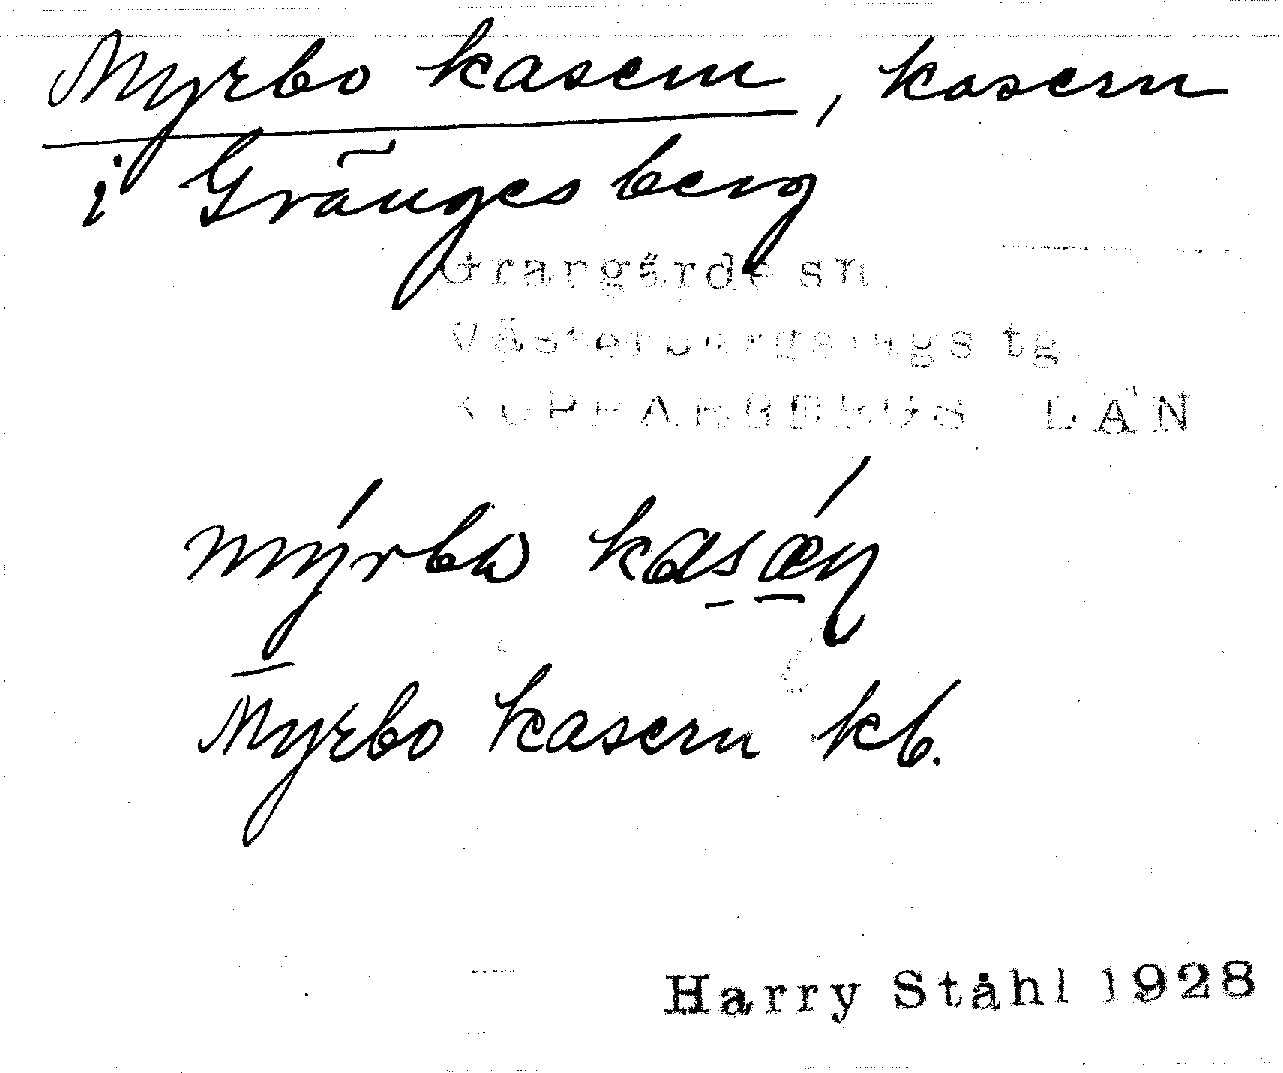 Myrbo kasern, kasern
i Grängesberg
Grangärde sn
Västerbergslags tg
KOPPARBERGS LÄN
Myrbo kasern kb.
Harry Ståhl 1928